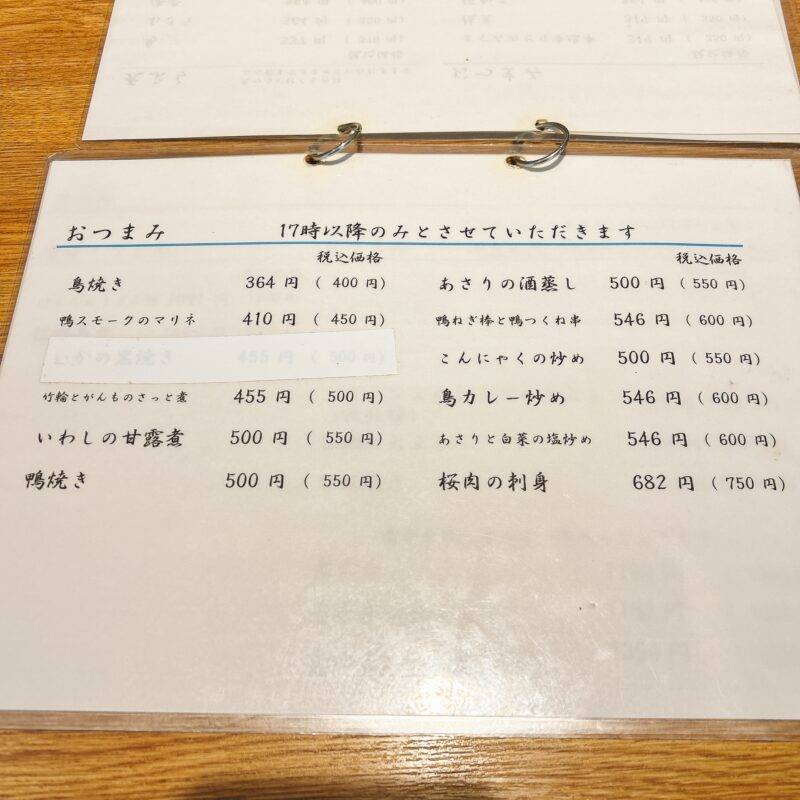 おつまみ 17時以降のみとさせていただきます
税込価格
鳥焼き 364 円 ( 400 円)
鴨スモークのマリネ 410 円 ( 450 円)
いかの黒焼き 455 円 ( 500 円)
竹輪とがんものさっと煮 455 円 ( 500 円)
いわしの甘露煮 500 円 ( 550 円)
鴨焼き 500 円 ( 550 円)
税込価格
あさりの酒蒸し 500 円 ( 550 円)
鴨ねぎ棒と鴨つくね串 546 円 ( 600 円)
こんにゃくの炒め 500 円 ( 550 円)
鳥カレー炒め 546 円 ( 600 円)
あさりと白菜の塩炒め 546 円 ( 600 円)
桜肉の刺身 682 円 ( 750 円)